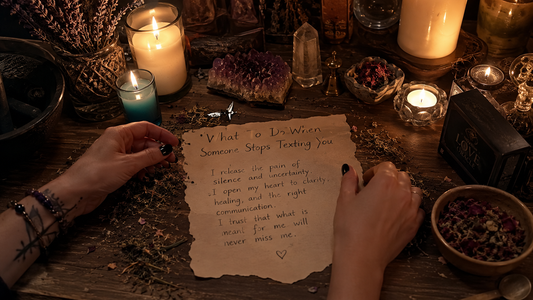 What To Do When
Someone Stops Texting You
I release the pain of
silence and uncertainty.
I open my heart to clarity,
healing, and the right
communication.
I trust that what is
meant for me will
never miss me.